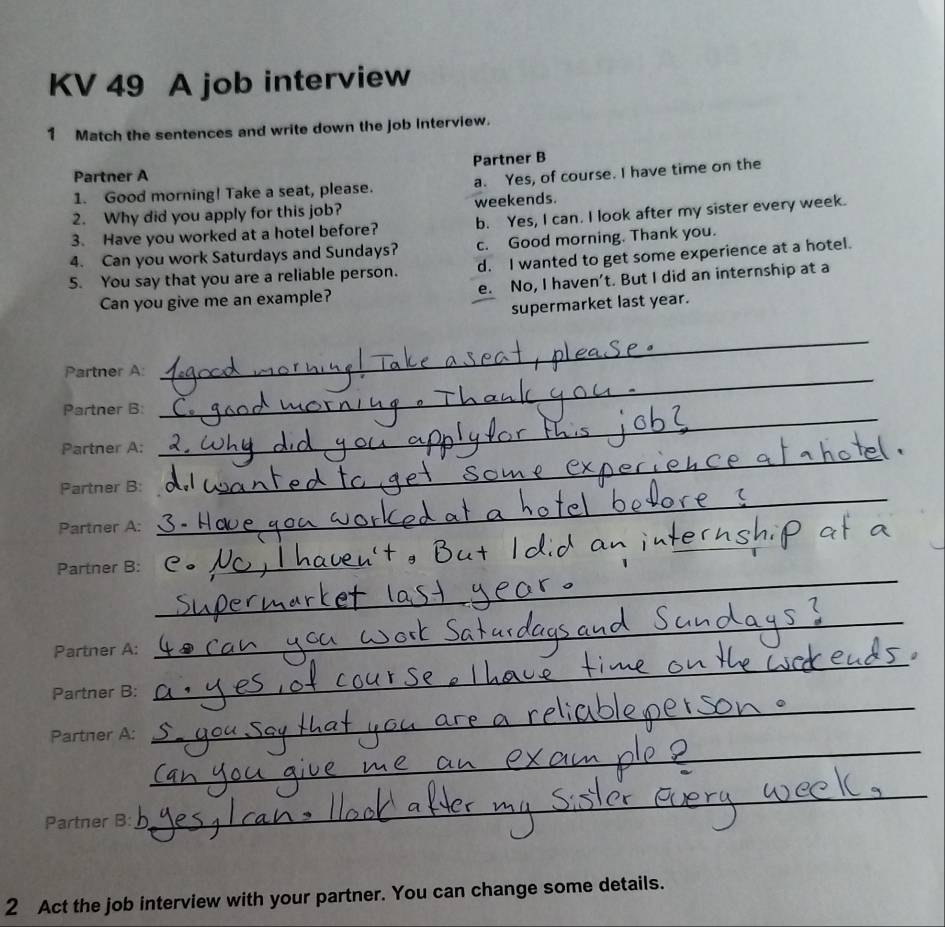 KV 49 A job interview
1 Match the sentences and write down the job interview.
Partner A
1. Good morning! Take a seat, please.
2. Why did you apply for this job?
3. Have you worked at a hotel before?
4. Can you work Saturdays and Sundays?
5. You say that you are a reliable person.
Can you give me an example?
Partner B
a. Yes, of course. I have time on the
weekends.
b. Yes, I can. I look after my sister every week.
c. Good morning. Thank you.
d. I wanted to get some experience at a hotel.
e. No, I haven't. But I did an internship at a
supermarket last year.
Partner A: 1. good morning! Take a seat, please.
Partner B: C. good morning. Thank you.
Partner A: 2. Why did you apply for this job?
Partner B: d. I wanted to get some experience at a hotel.
Partner A: 3. Have you worked at a hotel before?
Partner B: e. No, I haven't. But I did an internship at a
supermarket last year.
Partner A: 4. can you work Saturdays and Sundays?
Partner B: a. yes, of course. I have time on the weekends.
Partner A: 5. you say that you are a reliable person.
can you give me an example?
Partner B: b yes, I can. I look after my sister every week.
2 Act the job interview with your partner. You can change some details.